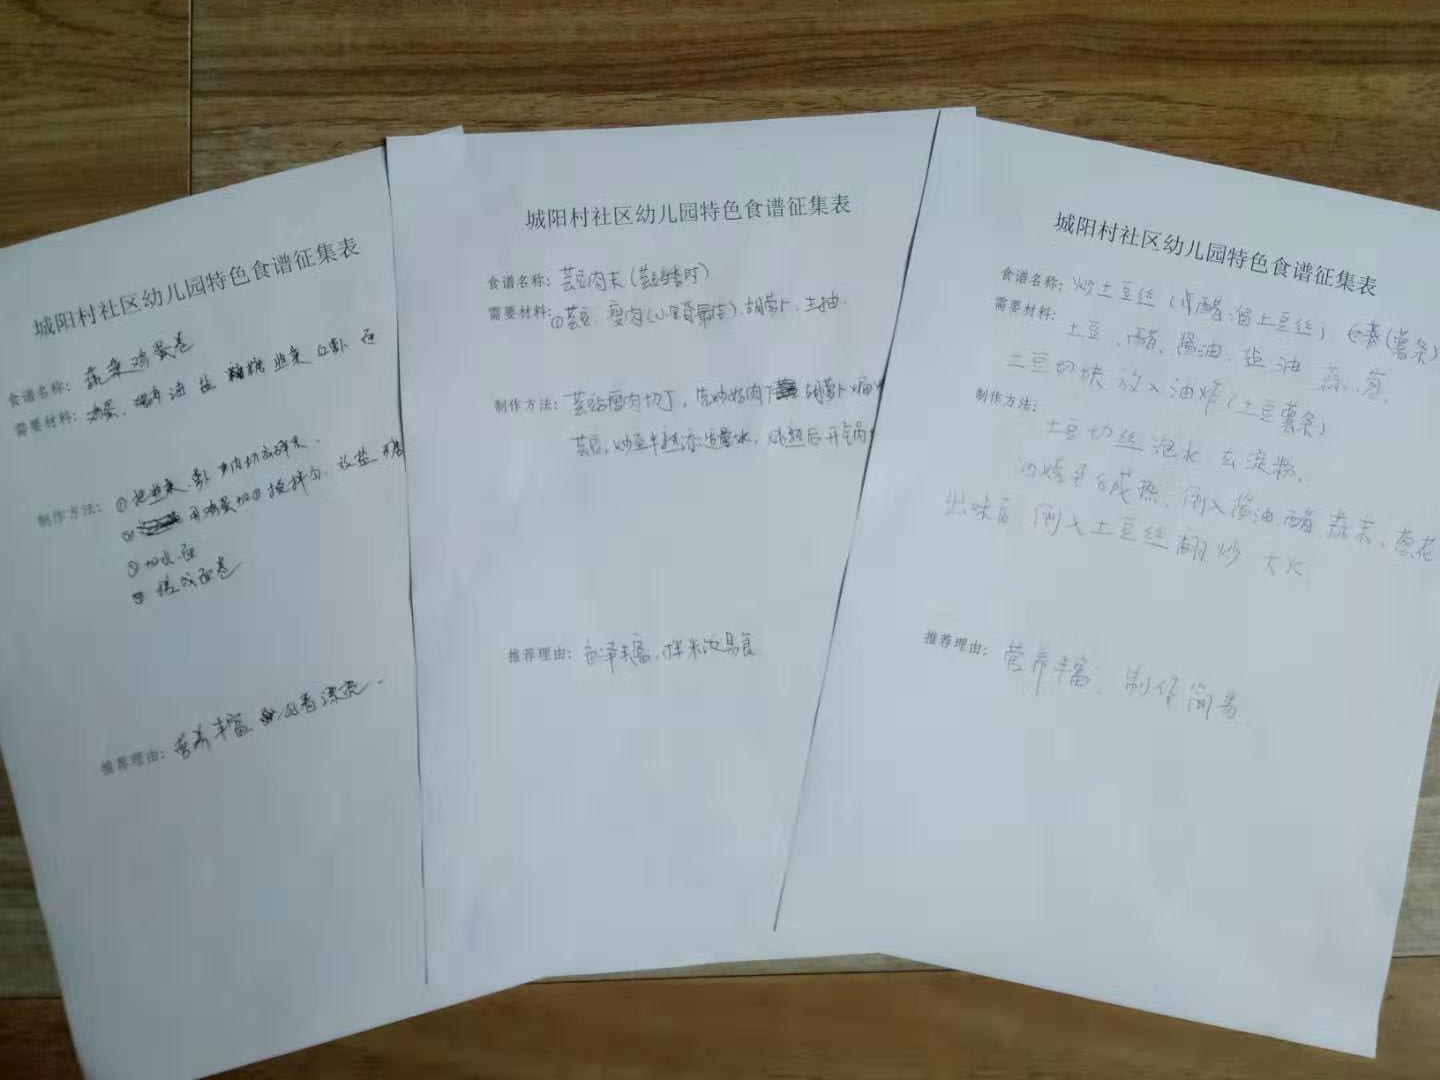 城阳村社区幼儿园特色食谱征集表
食谱名称：蔬菜鸡蛋卷
需要材料：鸡蛋、油 盐 糖 韭菜 面
制作方法：①把韭菜、
② 用鸡蛋加 搅拌匀、放盐 糖
③加水、面
搓成面卷
推荐理由：营养丰富、好看漂亮.
城阳村社区幼儿园特色食谱征集表
食谱名称：芸豆肉末(芸豆)
需要材料：①芸豆、瘦肉(小里脊最佳)、胡萝卜、生抽.
制作方法：芸豆瘦肉切丁，先炒好肉丁 胡萝卜煸炒
芸豆，炒至半熟添适量水，烧熟后开锅
推荐理由：色泽丰富，拌米饭易食
城阳村社区幼儿园特色食谱征集表
食谱名称：炒土豆丝（或醋溜土豆丝）(薯条)
需要材料：土豆、醋、酱油、盐、油、蒜、葱、
土豆切块放入油炸（土豆薯条）
制作方法：土豆切丝泡水去淀粉、
油烧至8成热，倒入酱油、醋、蒜末、葱花
出味后倒入土豆丝翻炒 大火
推荐理由：营养丰富；制作简易